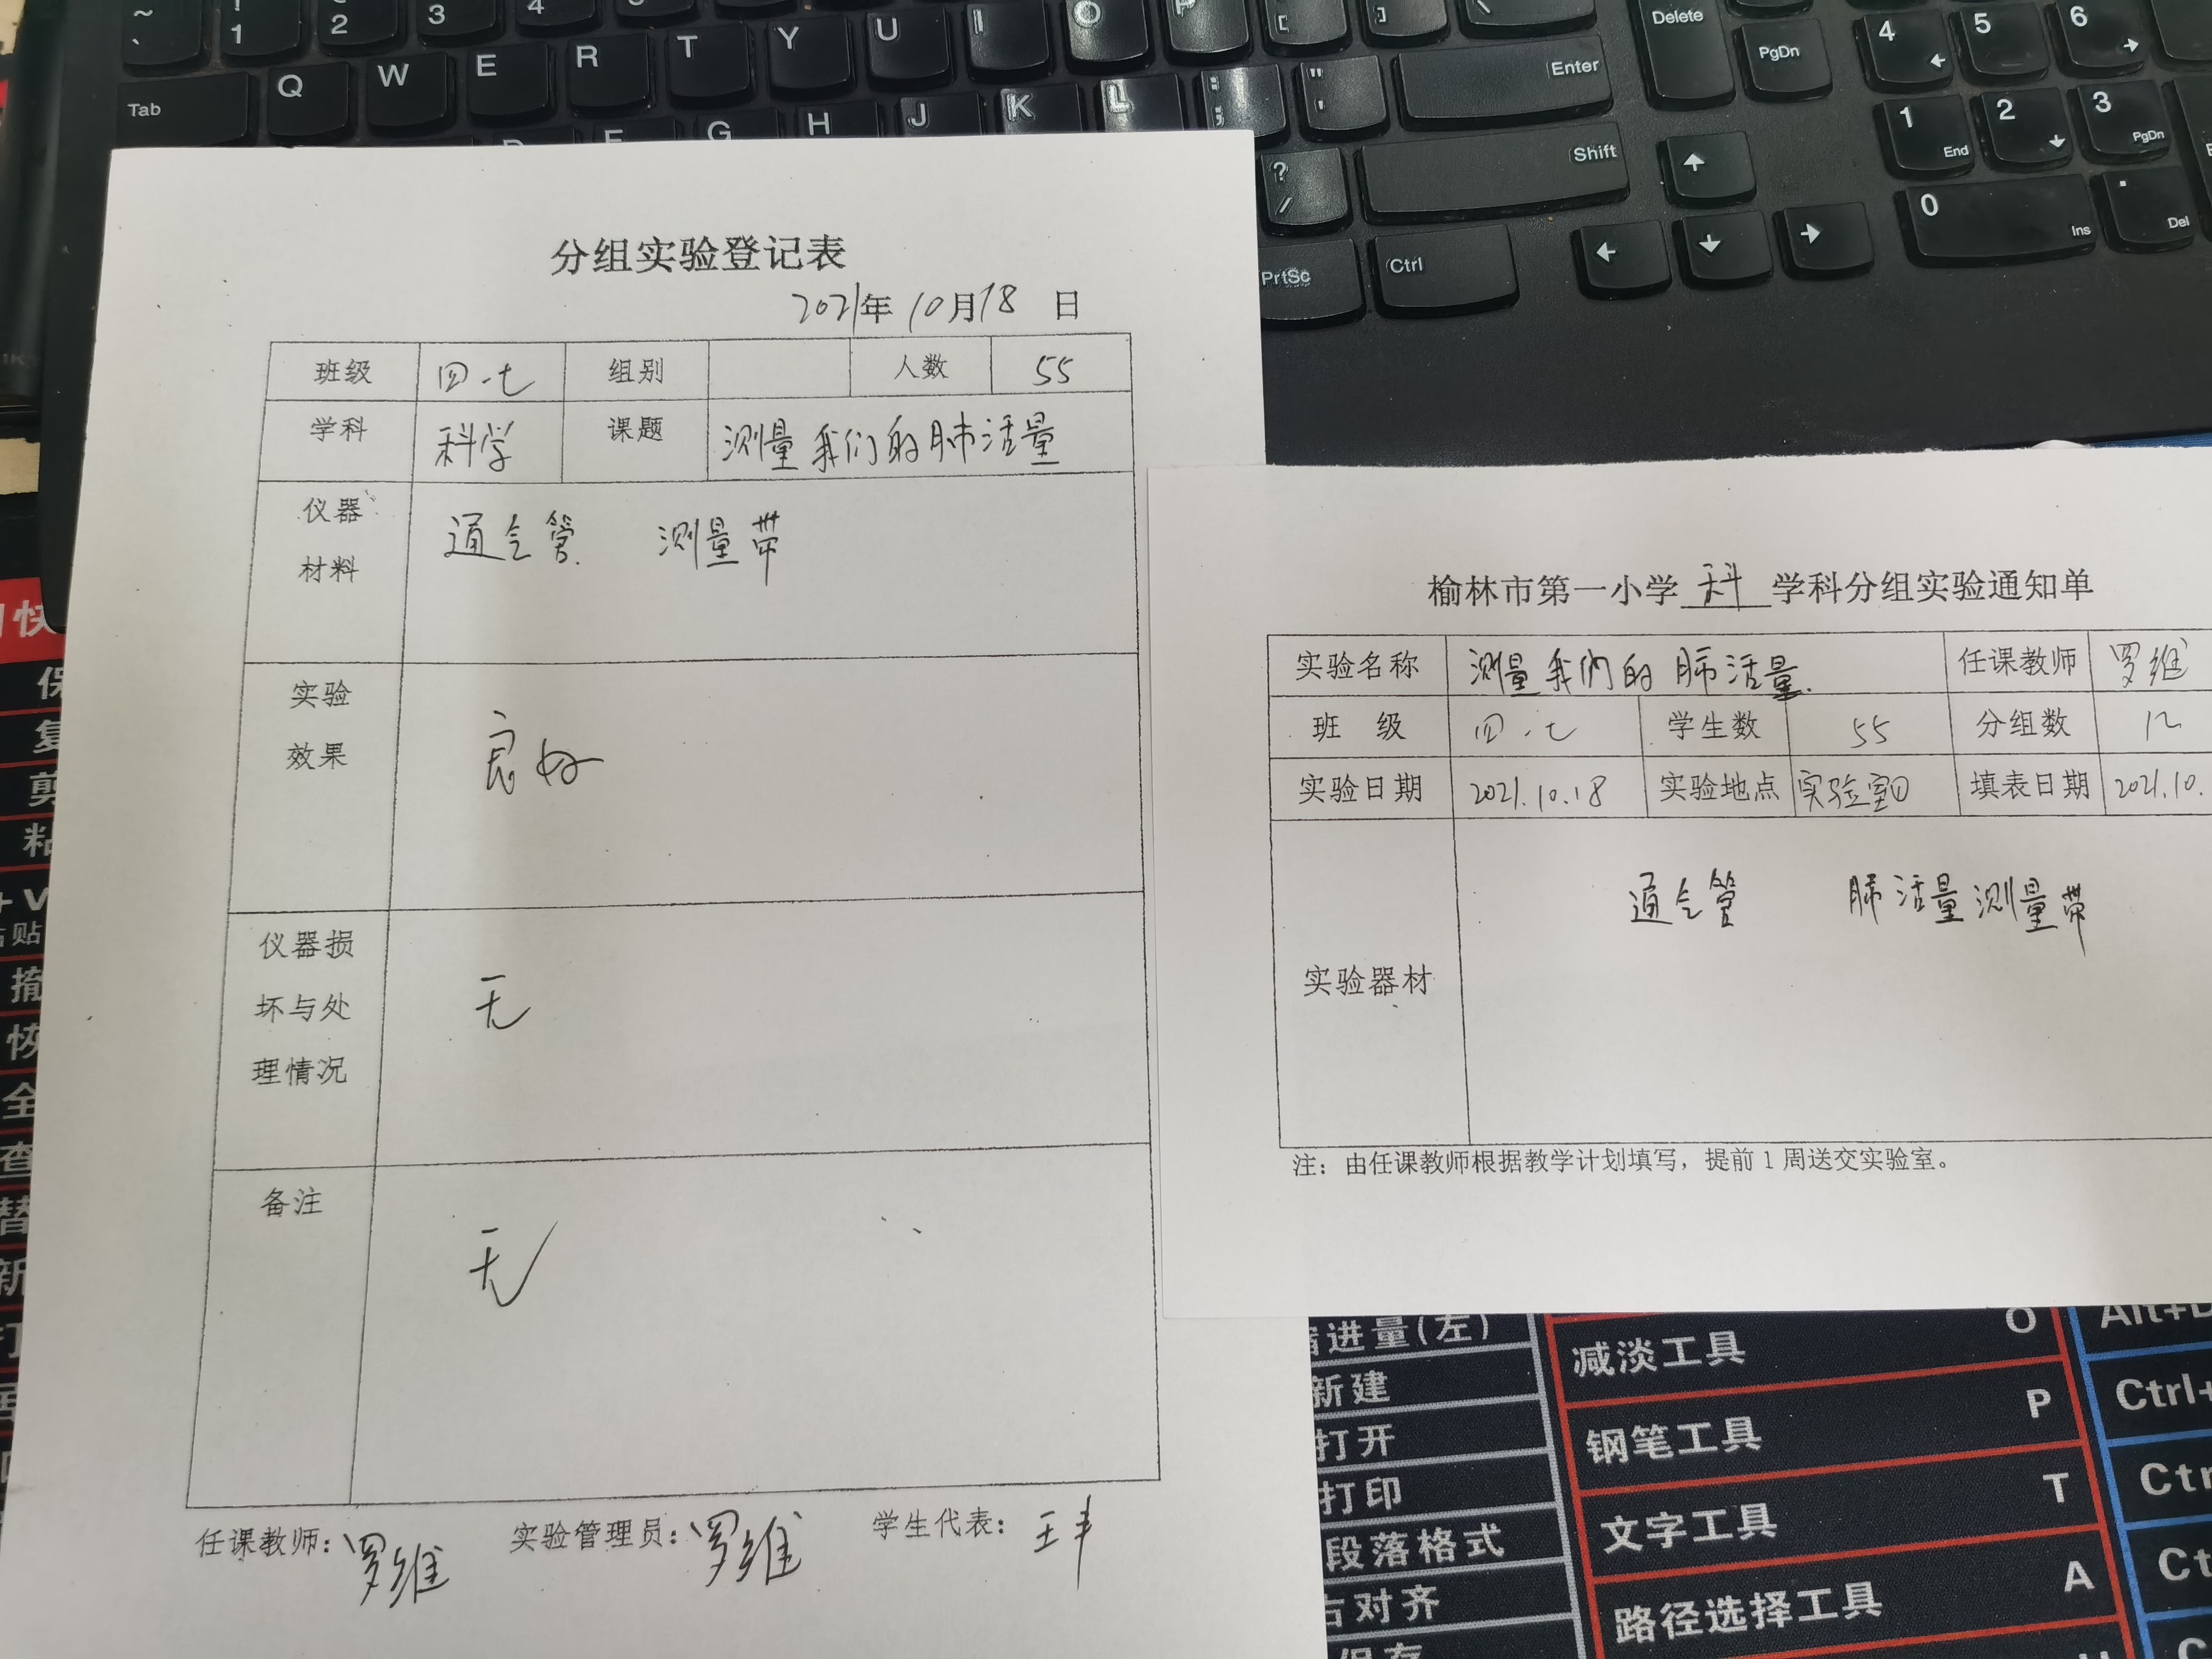 分组实验登记表
2021年10月18日
班级 四.七 组别 人数 55
学科 科学 课题 测量我们的肺活量
仪器材料 通气管 测量带
实验效果 良好
仪器损坏与处理情况 无
备注 无
任课教师：罗维 实验管理员：罗维 学生代表：王丰
榆林市第一小学科学科分组实验通知单
实验名称 测量我们的肺活量. 任课教师 罗维
班级 四.七 学生数 55 分组数 12
实验日期 2021.10.18 实验地点 实验室① 填表日期 2021.10.
实验器材 通气管 肺活量测量带
注：由任课教师根据教学计划填写，提前1周送交实验室。
~ 1 2 3 4
Tab Q W E R T Y U I O P [ ]
G H J K L ; : " ' Enter
? / Shift
PrtSc Ctrl
Delete PgDn
4 5 6
1 End 2 3 PgDn
0 Ins . Del
进量(左)
新建
打开
打印
段落格式
对齐
保存
减淡工具 O
钢笔工具 P
文字工具 T
路径选择工具 A
Ctrl+